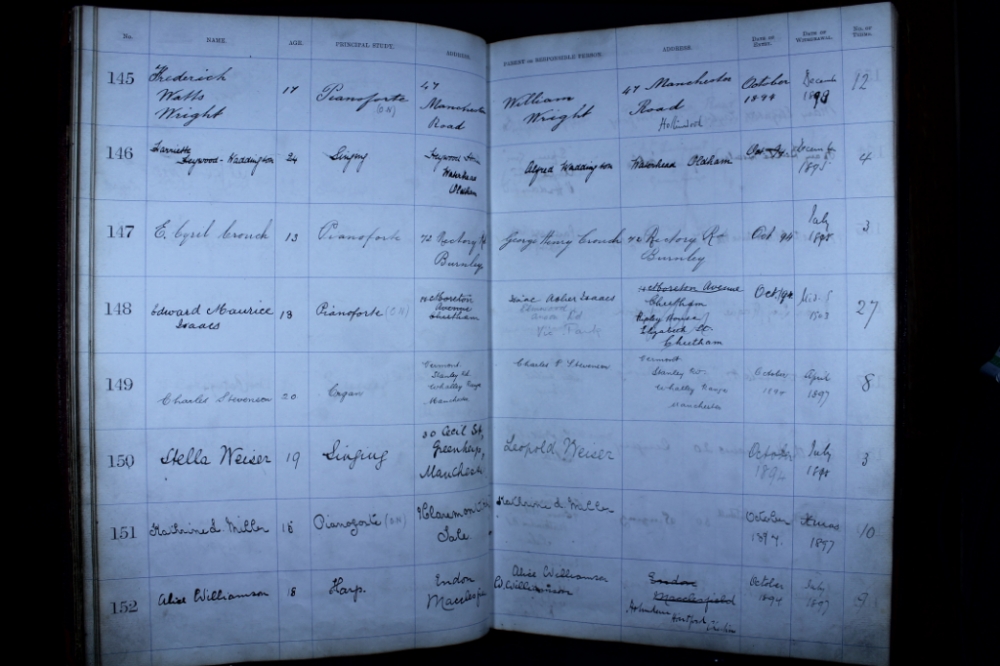 No. NAME. AGE. PRINCIPAL STUDY. ADDRESS. PARENT OR RESPONSIBLE PERSON. ADDRESS. DATE OF ENTRY. DATE OF WITHDRAWAL. NO. OF TERMS.
145 Frederick 17 Pianoforte 47 William 47 Manchester October 12
Watts Manchester Wright Road 1894
Wright Road Hollinwood
146 24 Singing Alfred Waddington Waterhead Oldham 4
Heywood-Waddington Waterhead 1895
Oldham
147 E. Cyril Crouch 13 Pianoforte 72 Rectory Rd George Henry Crouch 72 Rectory Rd Oct 94 July 3
Burnley Burnley 1895
148 Edward Maurice 13 Pianoforte Moreton Isaac Asher Isaacs Moreton Avenue Oct 94 27
Isaacs Avenue Cheetham 1903
Cheetham Vic Park Ripley House
Elizabeth St
Cheetham
149 Charles Stevenson 20 Organ Vermont Charles P Stevenson Vermont October April 8
Stanley Rd Stanley Rd 1894 1897
Whalley Range Whalley Range
Manchester Manchester
150 Stella Weiser 19 Singing 30 Cecil St, Leopold Weiser October July 3
Greenheys, 1894 1895
Manchester
151 Katherine d. Miller 18 Pianoforte Katherine d. Miller October Xmas 10
Sale 1894 1897
152 Alice Williamson 18 Harp. Endon Alice Williamson Endon October July 9
Macclesfield W. Williamson Macclesfield 1894 1897